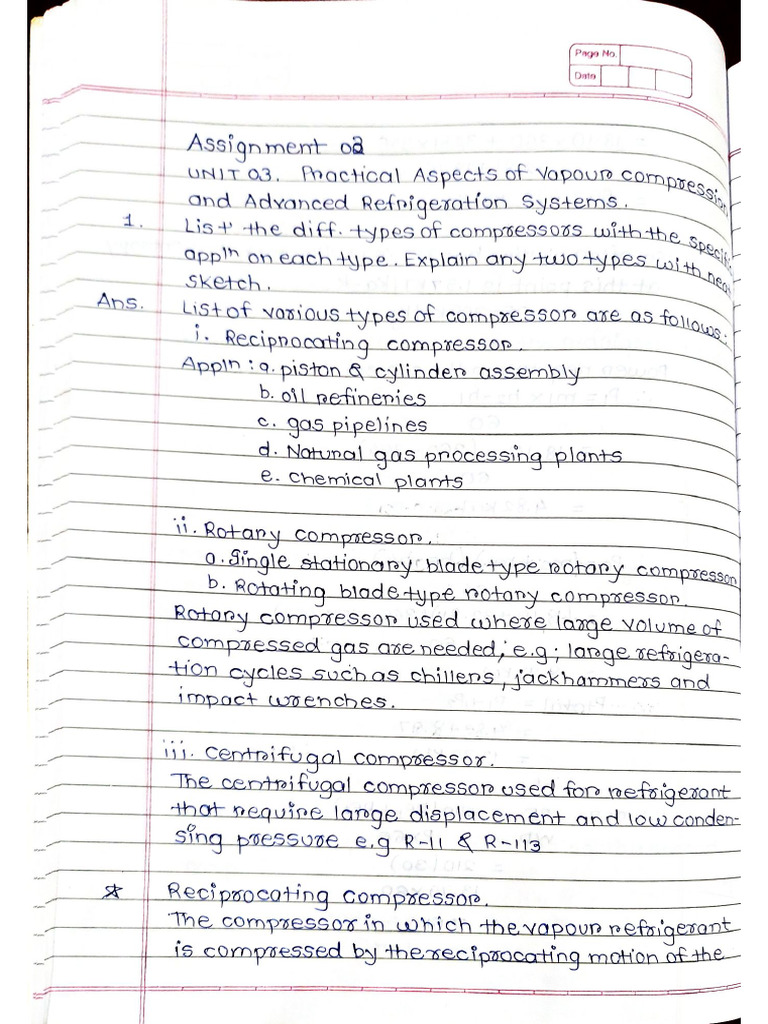 Page No.
Date
Assignment 02
UNIT 03. Practical Aspects of Vapour compression
and Advanced Refrigeration Systems.
1. List the diff. types of compressors with the specific
appln on each type. Explain any two types with neat
sketch.
Ans. List of various types of compressor are as follows:
i. Reciprocating compressor.
Appln : a. piston & cylinder assembly
b. oil refineries
c. gas pipelines
d. Natural gas processing plants
e. chemical plants
ii. Rotary compressor.
a. Single stationary blade type rotary compressor
b. Rotating blade type rotary compressor.
Rotary compressor used where large volume of
compressed gas are needed, e.g; large refrigera-
tion cycles such as chillers, jackhammers and
impact wrenches.
iii. Centrifugal compressor.
The centrifugal compressor used for refrigerant
that require large displacement and low conden-
sing pressure e.g R-11 & R-113
* Reciprocating compressor.
The compressor in which the vapour refrigerant
is compressed by the reciprocating motion of the